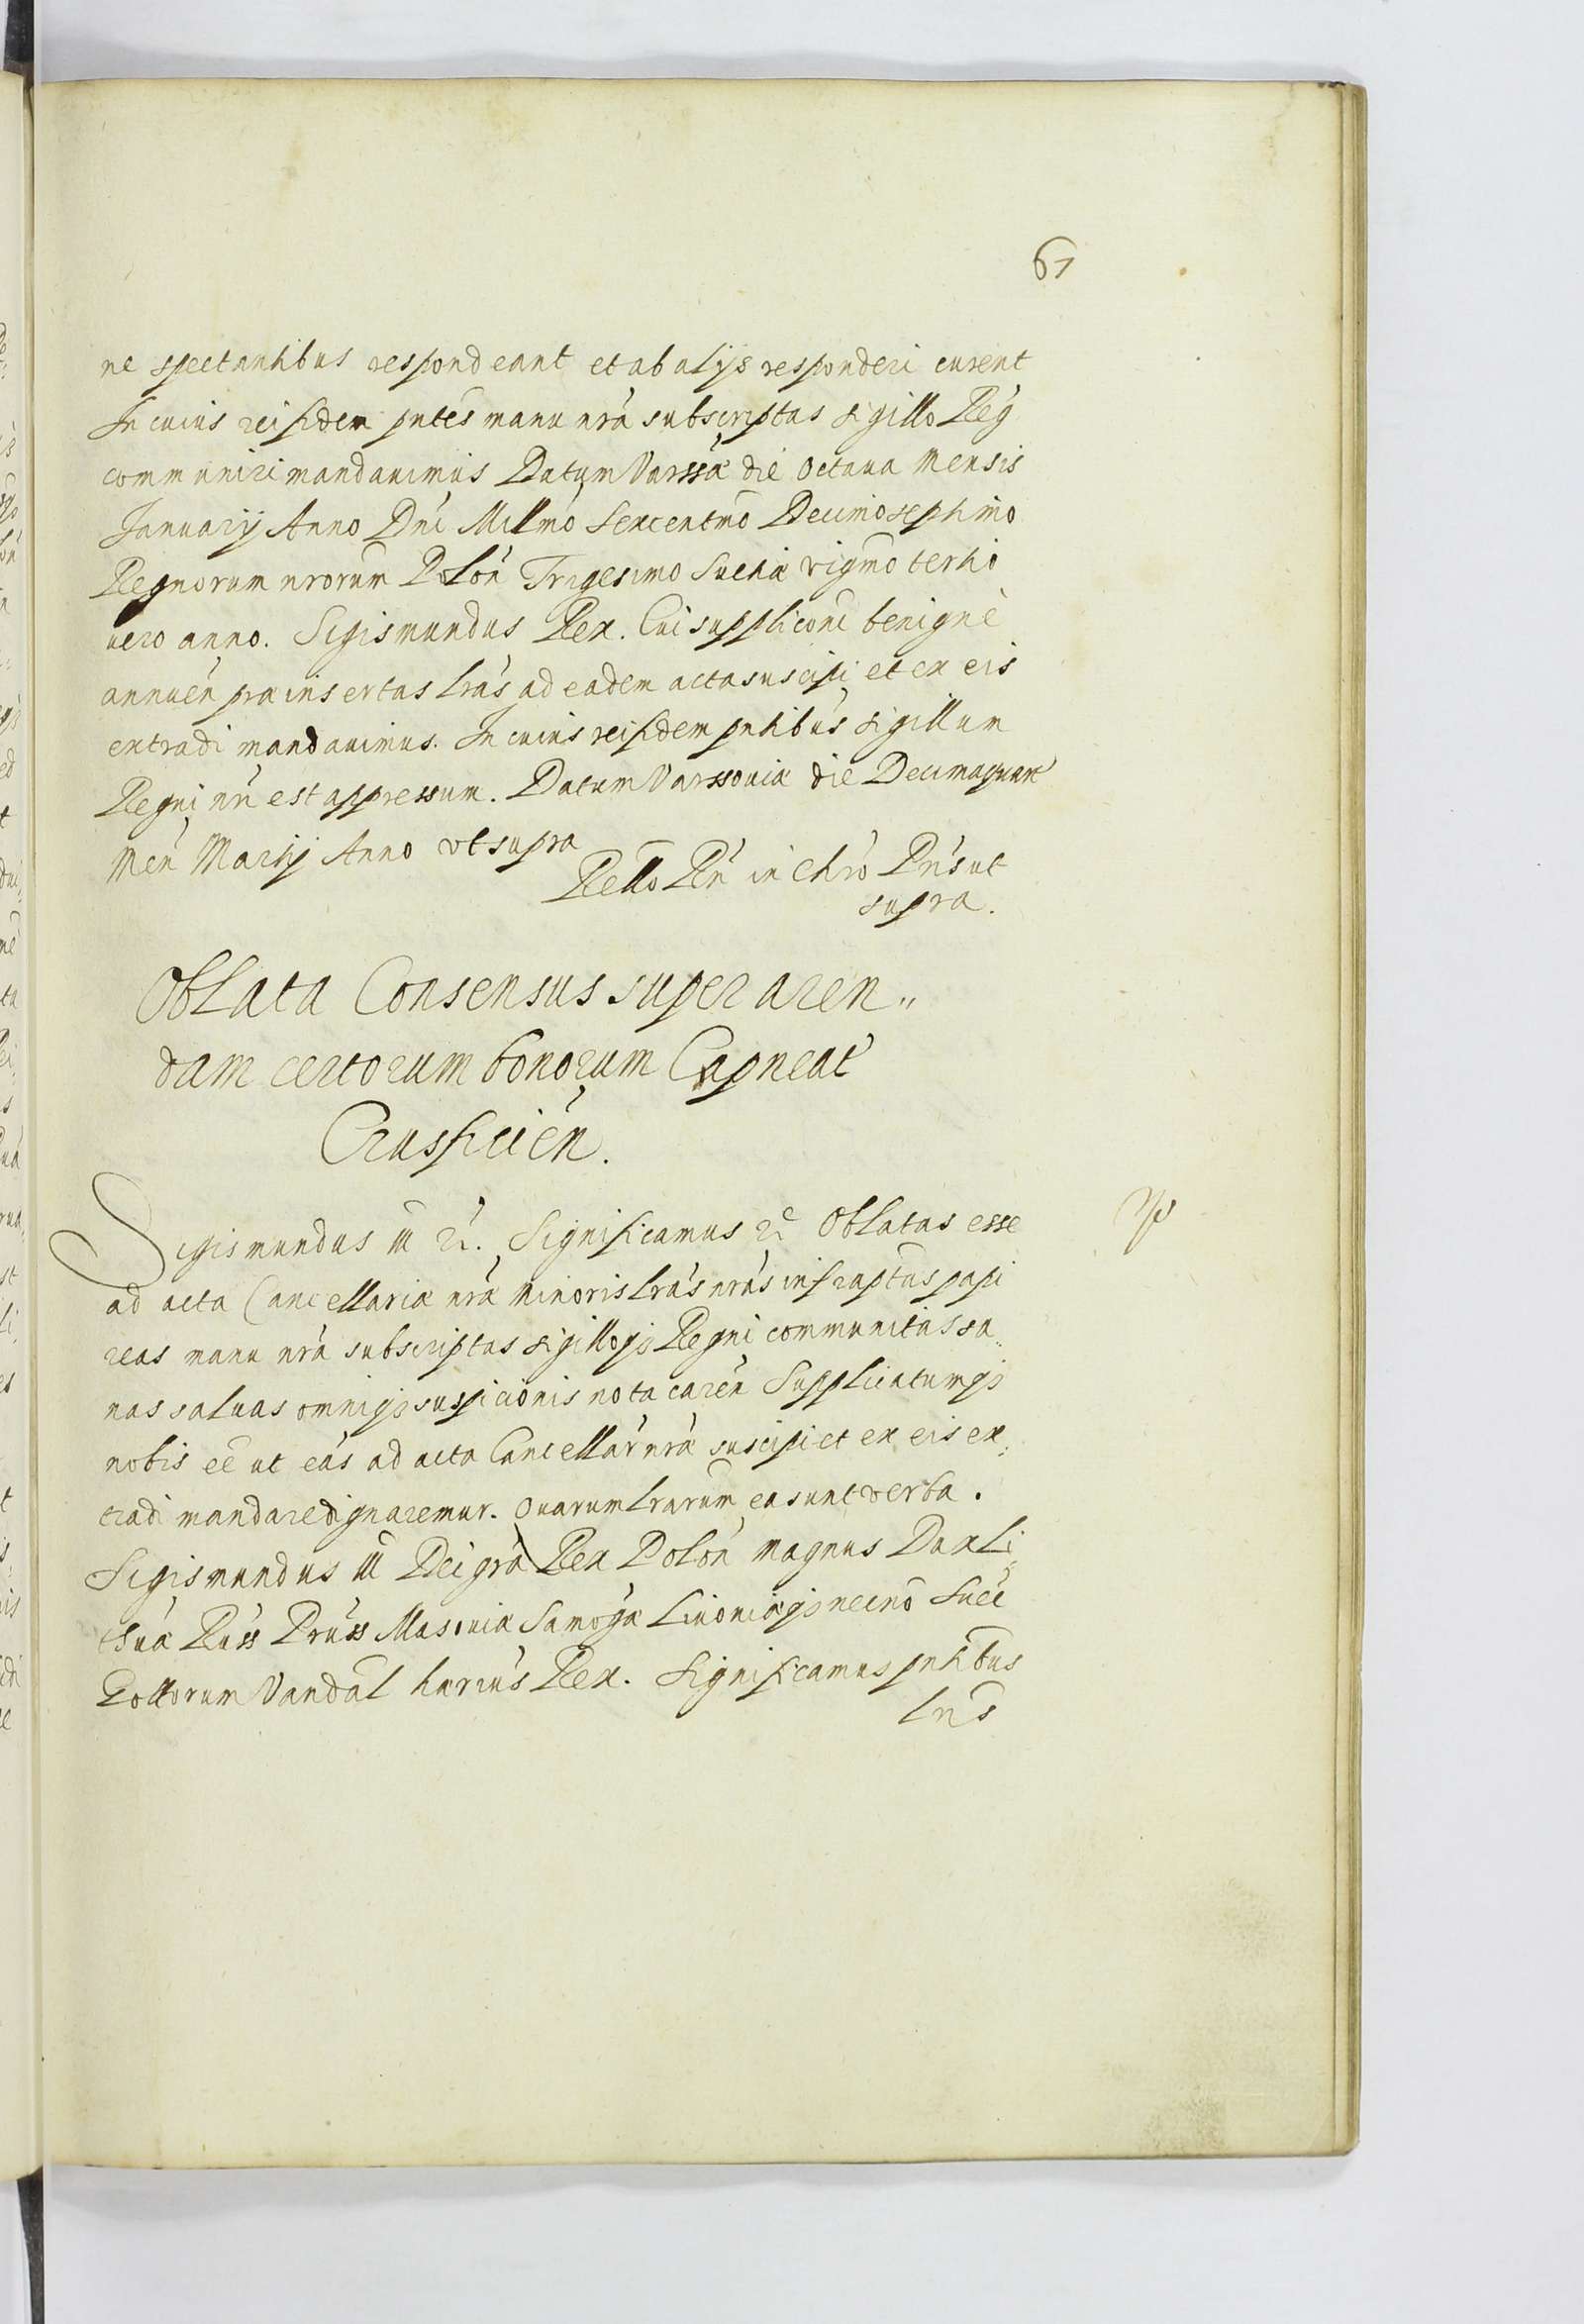 61
ne spectantibus respondeant et ab alijs responderi curent
In cuius rei fidem pntes manu nra subscriptas sigillo Reg
communiri mandavimus Datum Varssa die Octaua Mensis
Januarij Anno Dni Millmo Sexcentmo Decimoseptimo
Regnorum nrorum Polon Trigesimo Suetiæ vigmo tertio
uero anno. Sigismundus Rex. Cui suppliconi benignè
annuen præinsertas lras ad eadem acta suscipi et ex eis
extradi mandauimus. In cuius rei fidem pntibus sigillum
Regni nri est appressum. Datum Varssouiæ die Decimaquar
Men Martij Anno vt supra
Rello Rn in Chro Pris ut
supra.
Oblata Consensus super aren„
dam certorum bonorum Capneat
Crusficien.
Sigismundus III &. Significamus &c Oblatas esse
ad acta Cancellariæ nræ Minoris lras nras infraptas papi
reas manu nra subscriptas sigilloqз Regni communitas sa„
nas saluas omniqз suspicionis nota caren Supplicatumqз
nobis eê ut eas ad acta Cancellar nra suscipi et ex eis ex„
tradi mandare dignaremur. Quarum lrarum ea sunt verba.
Sigismundus III Dei gra Rex Polon Magnus Dux Li„
thuæ Russ Pruss Masouiæ Samog̃æ Liuoniæqз necnõ Suec
Gottorum Vandal hærius Rex. Significamus pntibus
lris